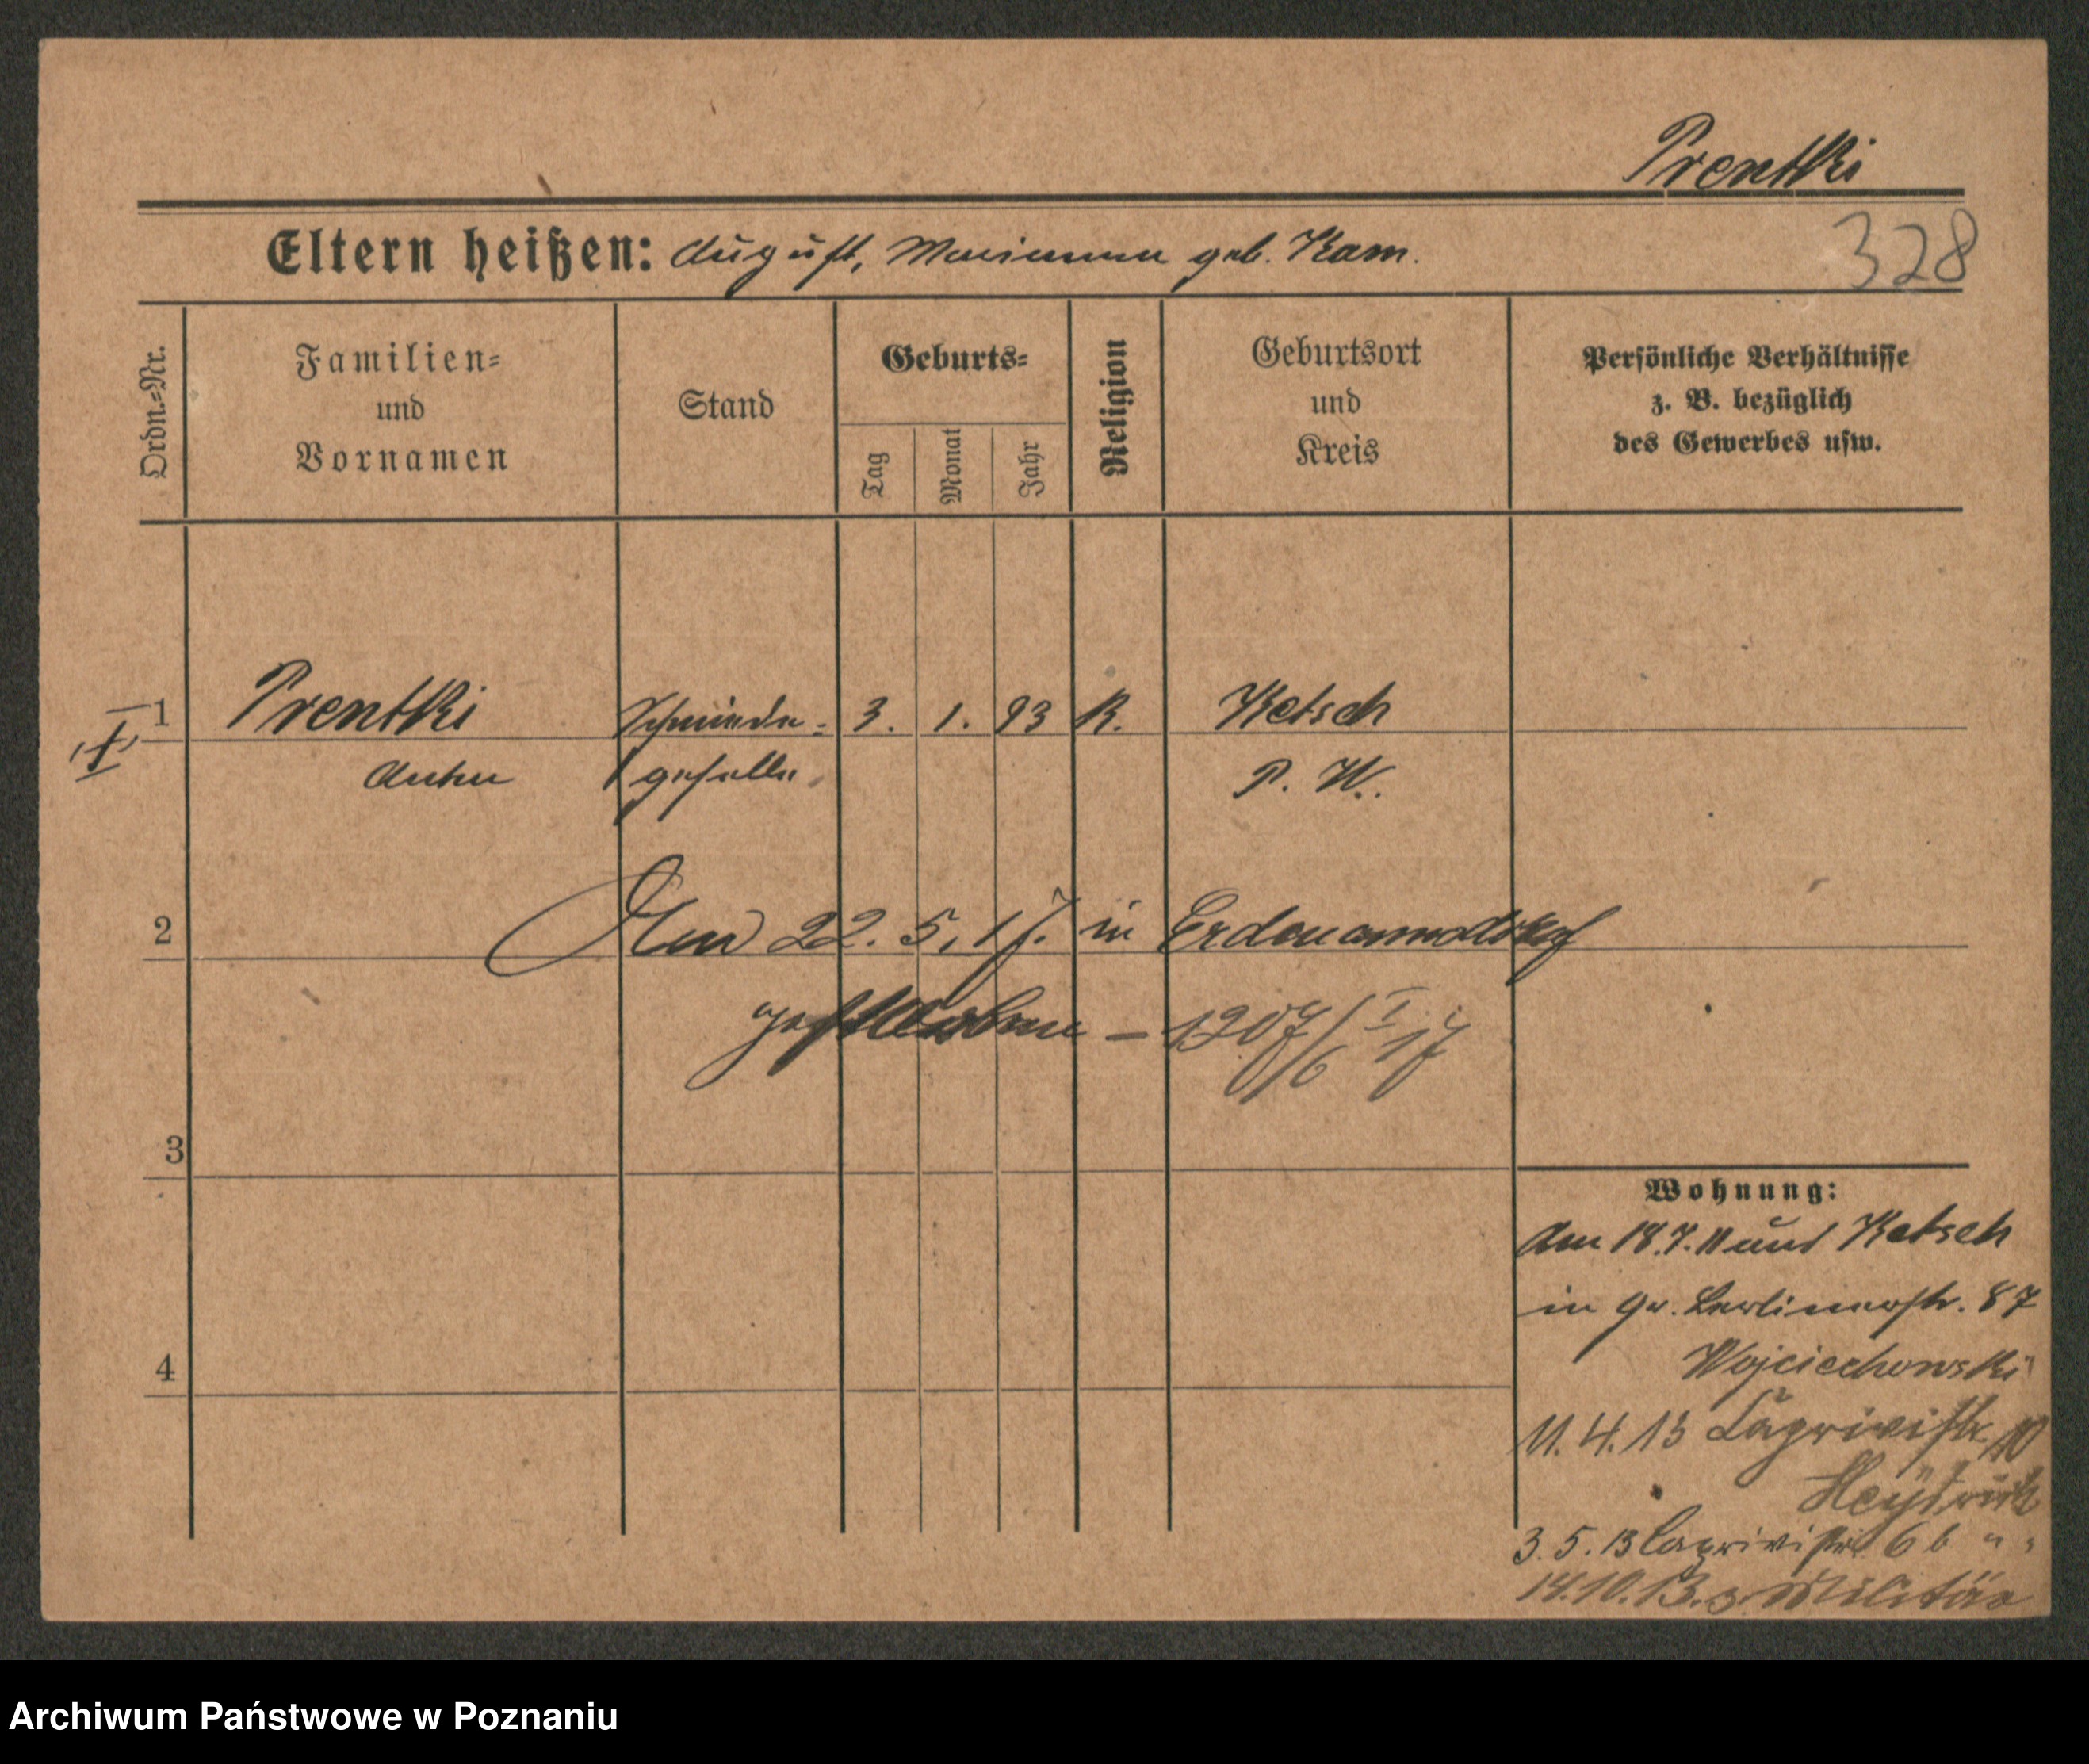 Prentki
328
Eltern heißen: August, Marianna geb. Kam.
Ordn.=Nr.
Familien=
und
Vornamen
Stand
Geburts=
Tag
Monat
Jahr
Religion
Geburtsort
und
Kreis
Persönliche Verhältnisse
z. B. bezüglich
des Gewerbes usw.
1 Prentki Schmiede= 3. 1. 93 K. Ketsch
Anton geselle P. W.
2 Am 22. 5. 17. in
gestorben – 1207/6 I 17
3
4
Wohnung:
Am 18.7.11 aus Ketsch
in Gr. Berlinerstr. 87
Wojciechowski
11. 4. 13 Caprivistr. 10
3. 5. 13 Caprivistr. 6b " "
14.10.13. z. Militär
Archiwum Państwowe w Poznaniu